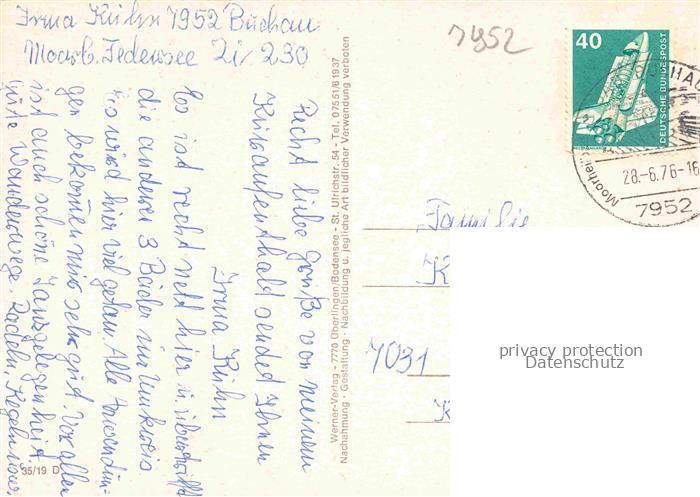 Irma Kühn 7952 Buchau
Moorb. Federsee Zi/230
7952
40
DEUTSCHE BUNDESPOST
BUCHAU
28.-6.76-16
Moorhei
7952
Recht liebe Grüße von meinem
Kuraufenthalt sendet Ihnen
Irma Kühn
Es ist recht nett hier u. übertrifft
die anderen 3 Bäder im Umkreis
Es wird hier viel getan. Alle Anwendun-
gen bekommen mir sehr gut. Vor allem
ist auch schöne Tanzgelegenheit.
Gute Wanderwege. Radeln, Kegeln usw.
Werner-Verlag - 7770 Überlingen/Bodensee - St. Ulrichstr. 54 - Tel. 07551/61937
Nachahmung - Gestaltung - Nachbildung u. jegliche Art bildlicher Verwendung verboten
Familie
K
7031
K
privacy protection
Datenschutz
35/19 D